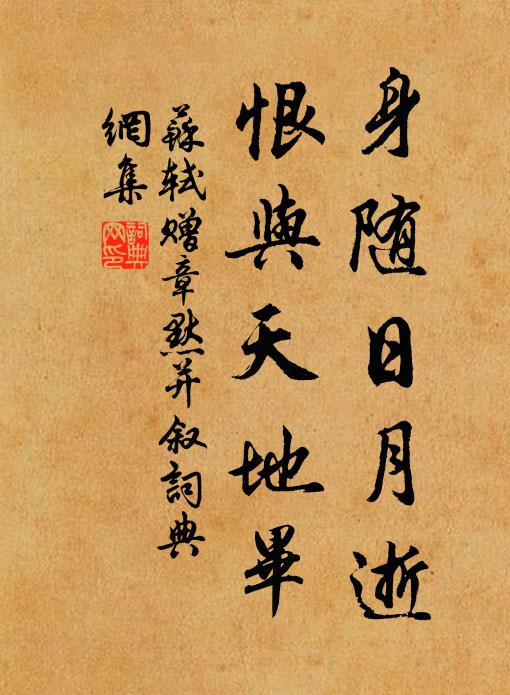 身随日月逝
恨與天地畢
蘇軾贈章默并叙詞典
網集
詞典
网印